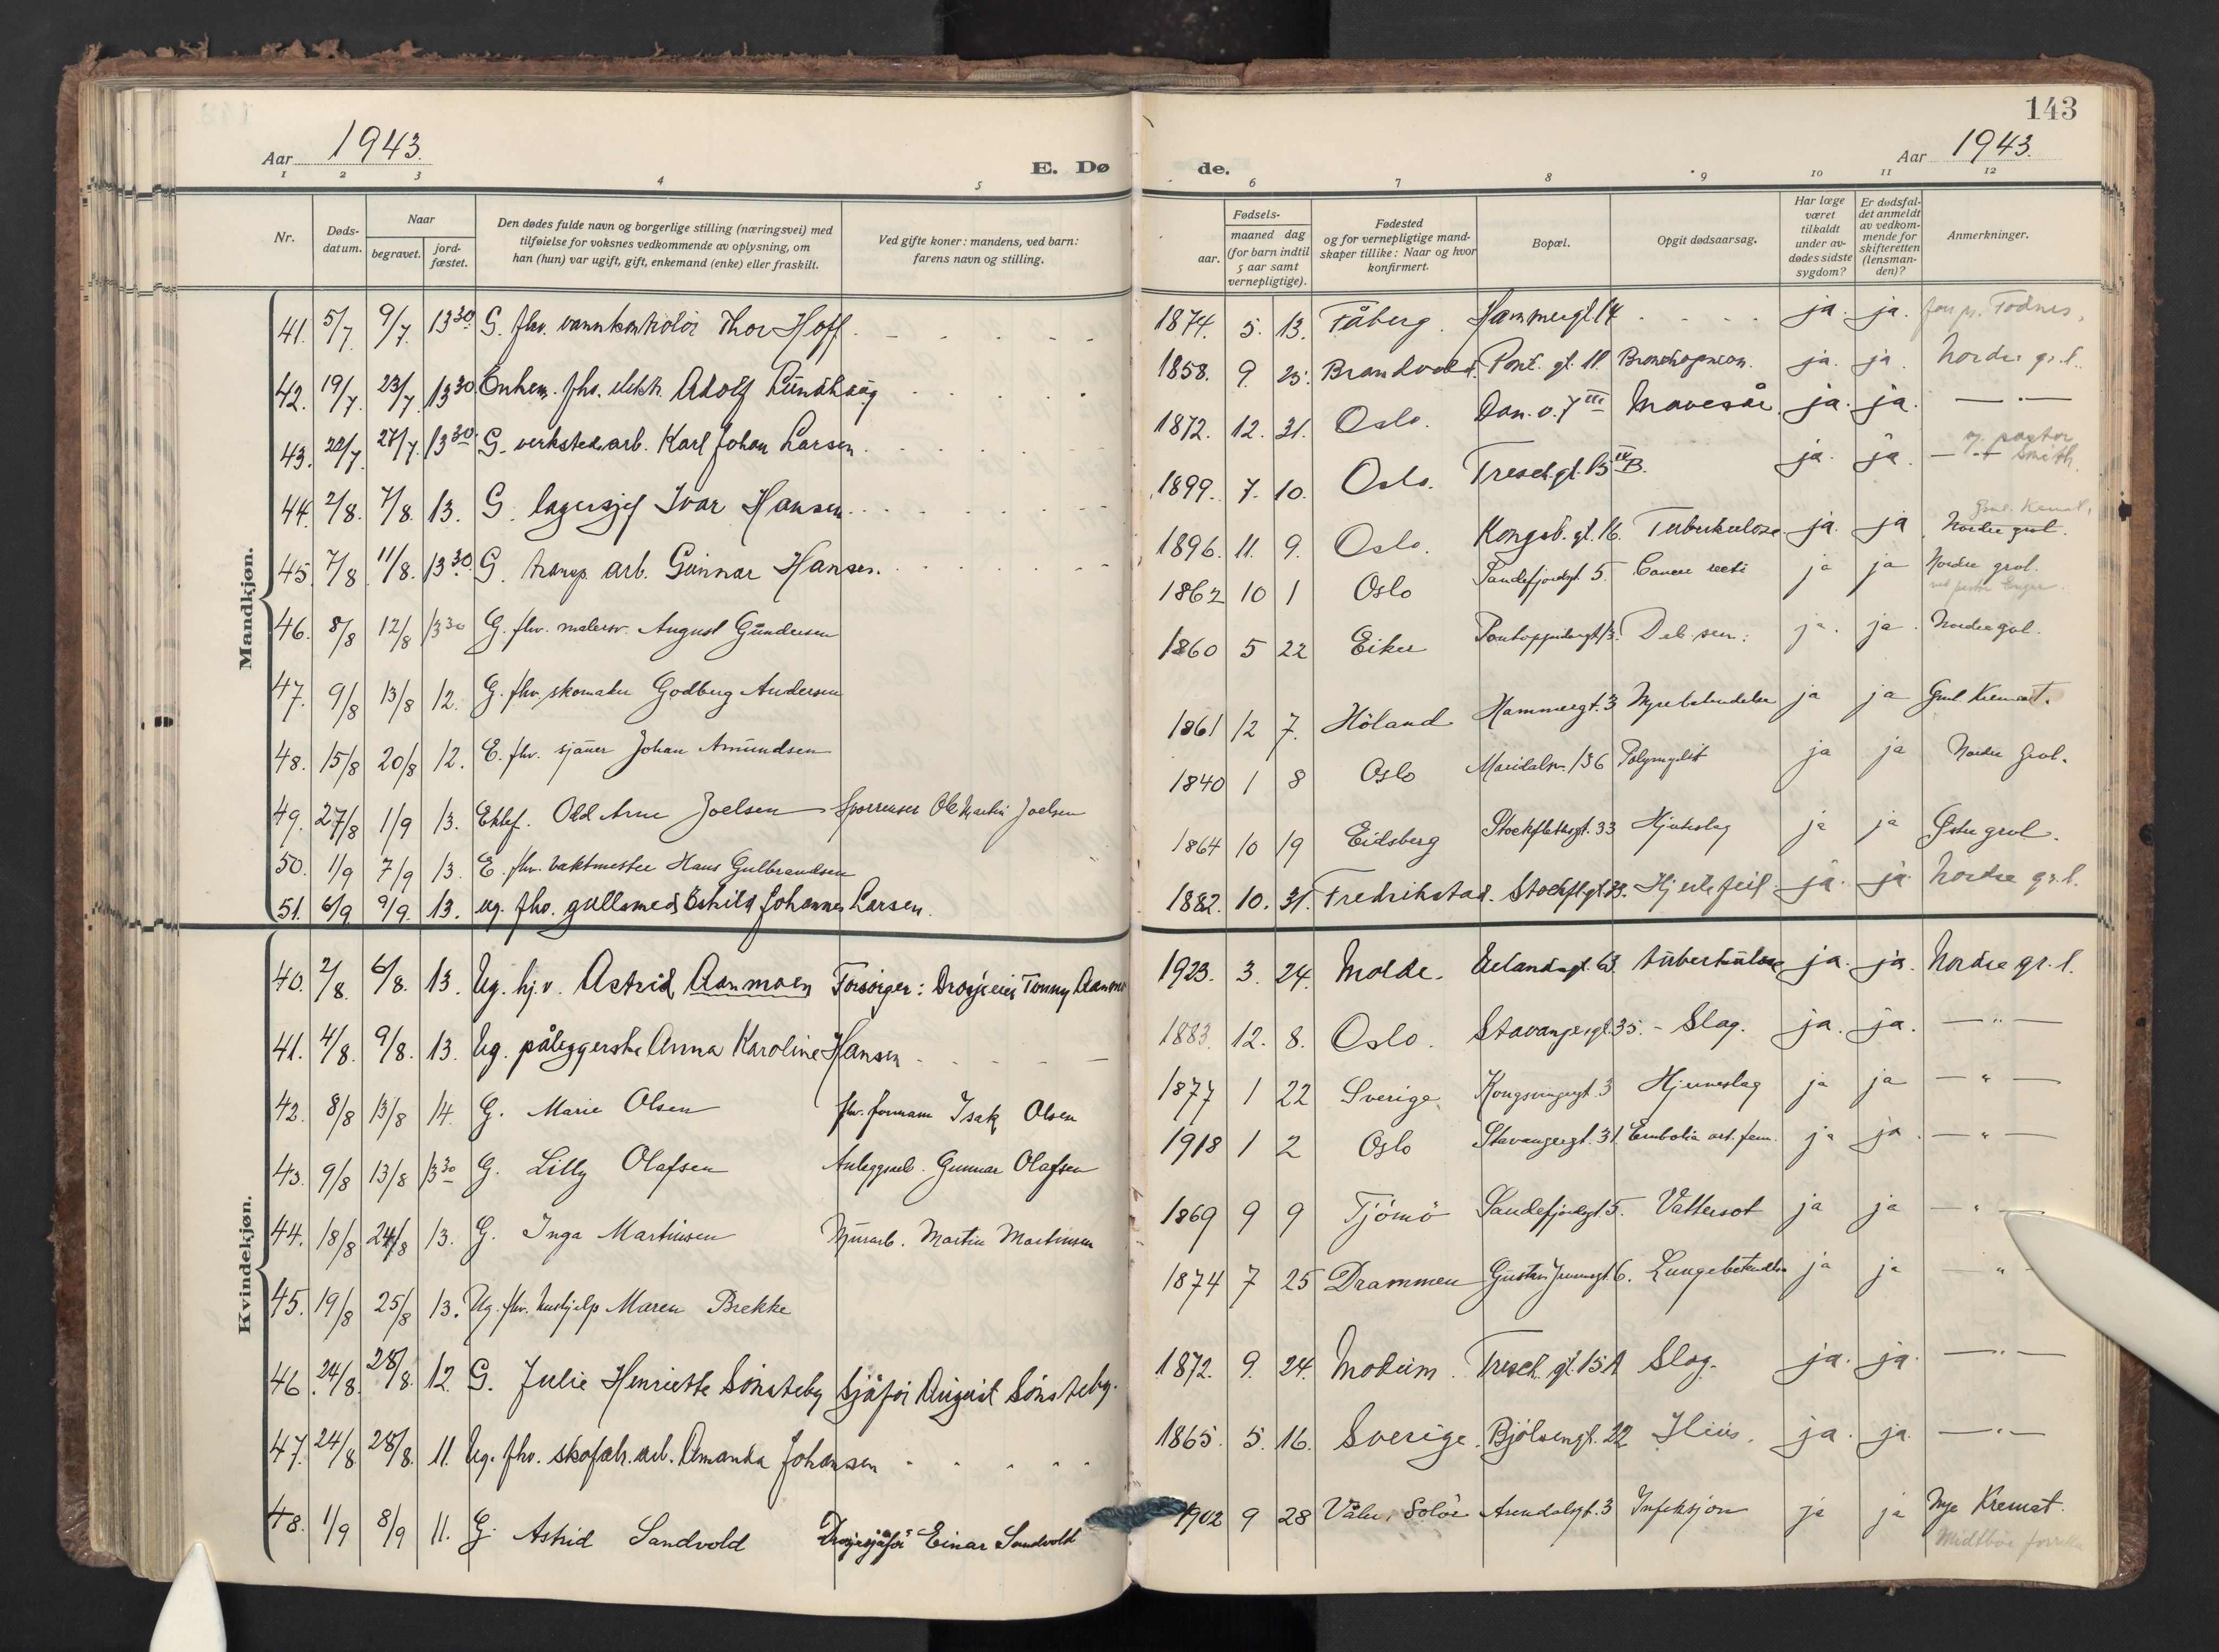 143
Aar 1943.
E. Døde.
Aar 1943.
1 2 3 4 5 6 7 8 9 10 11 12
Nr.
Døds-datum.
Naar
begravet.
jord-fæstet.
Den dødes fulde navn og borgerlige stilling (næringsvei) med tilføielse for voksnes vedkommende av oplysning, om han (hun) var ugift, gift, enkemand (enke) eller fraskilt.
Ved gifte koner: mandens, ved barn: farens navn og stilling.
Fødsels-
aar.
maaned dag
(for barn indtil 5 aar samt vernepligtige).
Fødested og for vernepligtige mandskaper tillike: Naar og hvor konfirmert.
Bopæl.
Opgit dødsaarsag.
Har læge været tilkaldt under avdødes sidste sygdom?
Er dødsfaldet anmeldt av vedkommende for skifteretten (lensmanden)?
Anmerkninger.
Mandkjøn.
41. 5/7. 9/7. 13 30 G. fhv. vannkontrolör Thor Hoff. 1874. 5. 13. Fåberg. Hammergt. 14 ja. ja.
42. 19/7. 23/7. 13 30. Enkem. fhv. Adolf Lundhaug 1858. 9. 25. Brandvold. Pont. gt. 11. Bronchopneum. ja. ja. Nordre gr.l.
43. 22/7. 27/7. 13 30. G. verkstedarb. Karl Johan Larsen 1872. 12. 31. Oslo. Dan. v. 7 III Mavesår. ja. ja. — . —
44. 2/8. 7/8. 13. G. lagersjef Ivar Hansen 1899. 7. 10. Oslo. Tresch.gt. 15 B. ja. ja. pastor Smith.
45. 7/8 11/8. 13 30. G. transp. arb. Gunnar Hansen. 1896. 11. 9. Oslo. Kongsb. gt. 16. Tuberkulose ja. ja Nordre grvl.
46. 8/8 12/8 13 30 G. fhv. malersv. August Gundersen 1862 10 1 Oslo Sandefjordgt. 5. Cancer recti ja ja Nordre grvl.
47. 9/8 13/8 12. G. fhv. skomaker Godberg Andersen 1860 5 22 Eiker Pontoppidangt. 13. Deb. sen: ja. ja. Nordre gvl.
48. 15/8 20/8 12. E. fhv. sjauer Johan Amundsen 1861 12 7. Höland Hammergt. 3 ja ja Kremat.
49. 27/8 1/9 13. Ektef. Odd Arne Joelsen Sporrenser Ole Martin Joelsen 1840 1 8 Oslo Maridalsv. 136 ja ja Nordre Grvl.
50. 1/9 7/9 13. E. fhv. vaktmester Hans Gulbrandsen 1864 10 19 Eidsberg Stockflethsgt. 33 ja ja Østre grvl.
51. 6/9 9/9. 13. ug. fhv. gullsmed Johannes Larsen. 1882. 10. 31. Fredrikstad. Stockfl.gt. 39. Hjertefeil. ja. ja. Nordre gr.l.
Kvindekjøn.
40. 2/8. 6/8. 13. Ug. hj.v. Astrid Aanmoen Forsørger: Drosjeeier Tommy Aanmo 1923. 3. 24. Molde. tuberkulose ja. ja. Nordre gr.l.
41. 4/8. 9/8. 13. Ug. påleggerske Anna Karoline Hansen 1883. 12. 8. Oslo. Stavangergt. 35. - Slag. ja. ja. — " —
42. 8/8 13/8 14. G. Marie Olsen fhv. formann Isak Olsen 1877 1 22 Sverige Kongsvingergt. 3 Hjerneslag ja ja — " —
43. 9/8 13/8 13 30 G. Lilly Olafsen Anleggsarb. Gunnar Olafsen 1918 1 2 Oslo Stavangergt. 31 Embolia art. fem. ja ja — " —
44. 18/8 24/8 13. G. Inga Martinsen Murarb. Martin Martinsen 1869 9 9 Tjömö Sandefjordgt. 5. Vattersot ja ja — " —
45. 19/8 25/8 13. Ug. fhv. hushjelp Maren Brekke 1874 7 25 Drammen Gustav Jensensgt. 6. ja ja — " —
46. 24/8. 28/8. 12. G. Julie Henriette Sönsteby sjåför August Sönsteby. 1872. 9. 24. Modum. Tresch. gt. 15 A Slag. ja. ja. — " —
47. 24/8 28/8. 11. Ug. fhv. skofabr. arb. Amanda Johansen 1865. 5. 16. Sverige. Bjölsengt. 22 Ileus. ja. ja. — " —
48. 1/9 8/9 11. G. Astrid Sandvold Drosjesjåför Einar Sandvold 1902 9 28 Våler, Solör Arendalsgt. 3 Infeksjon ja ja Nye Kremat.